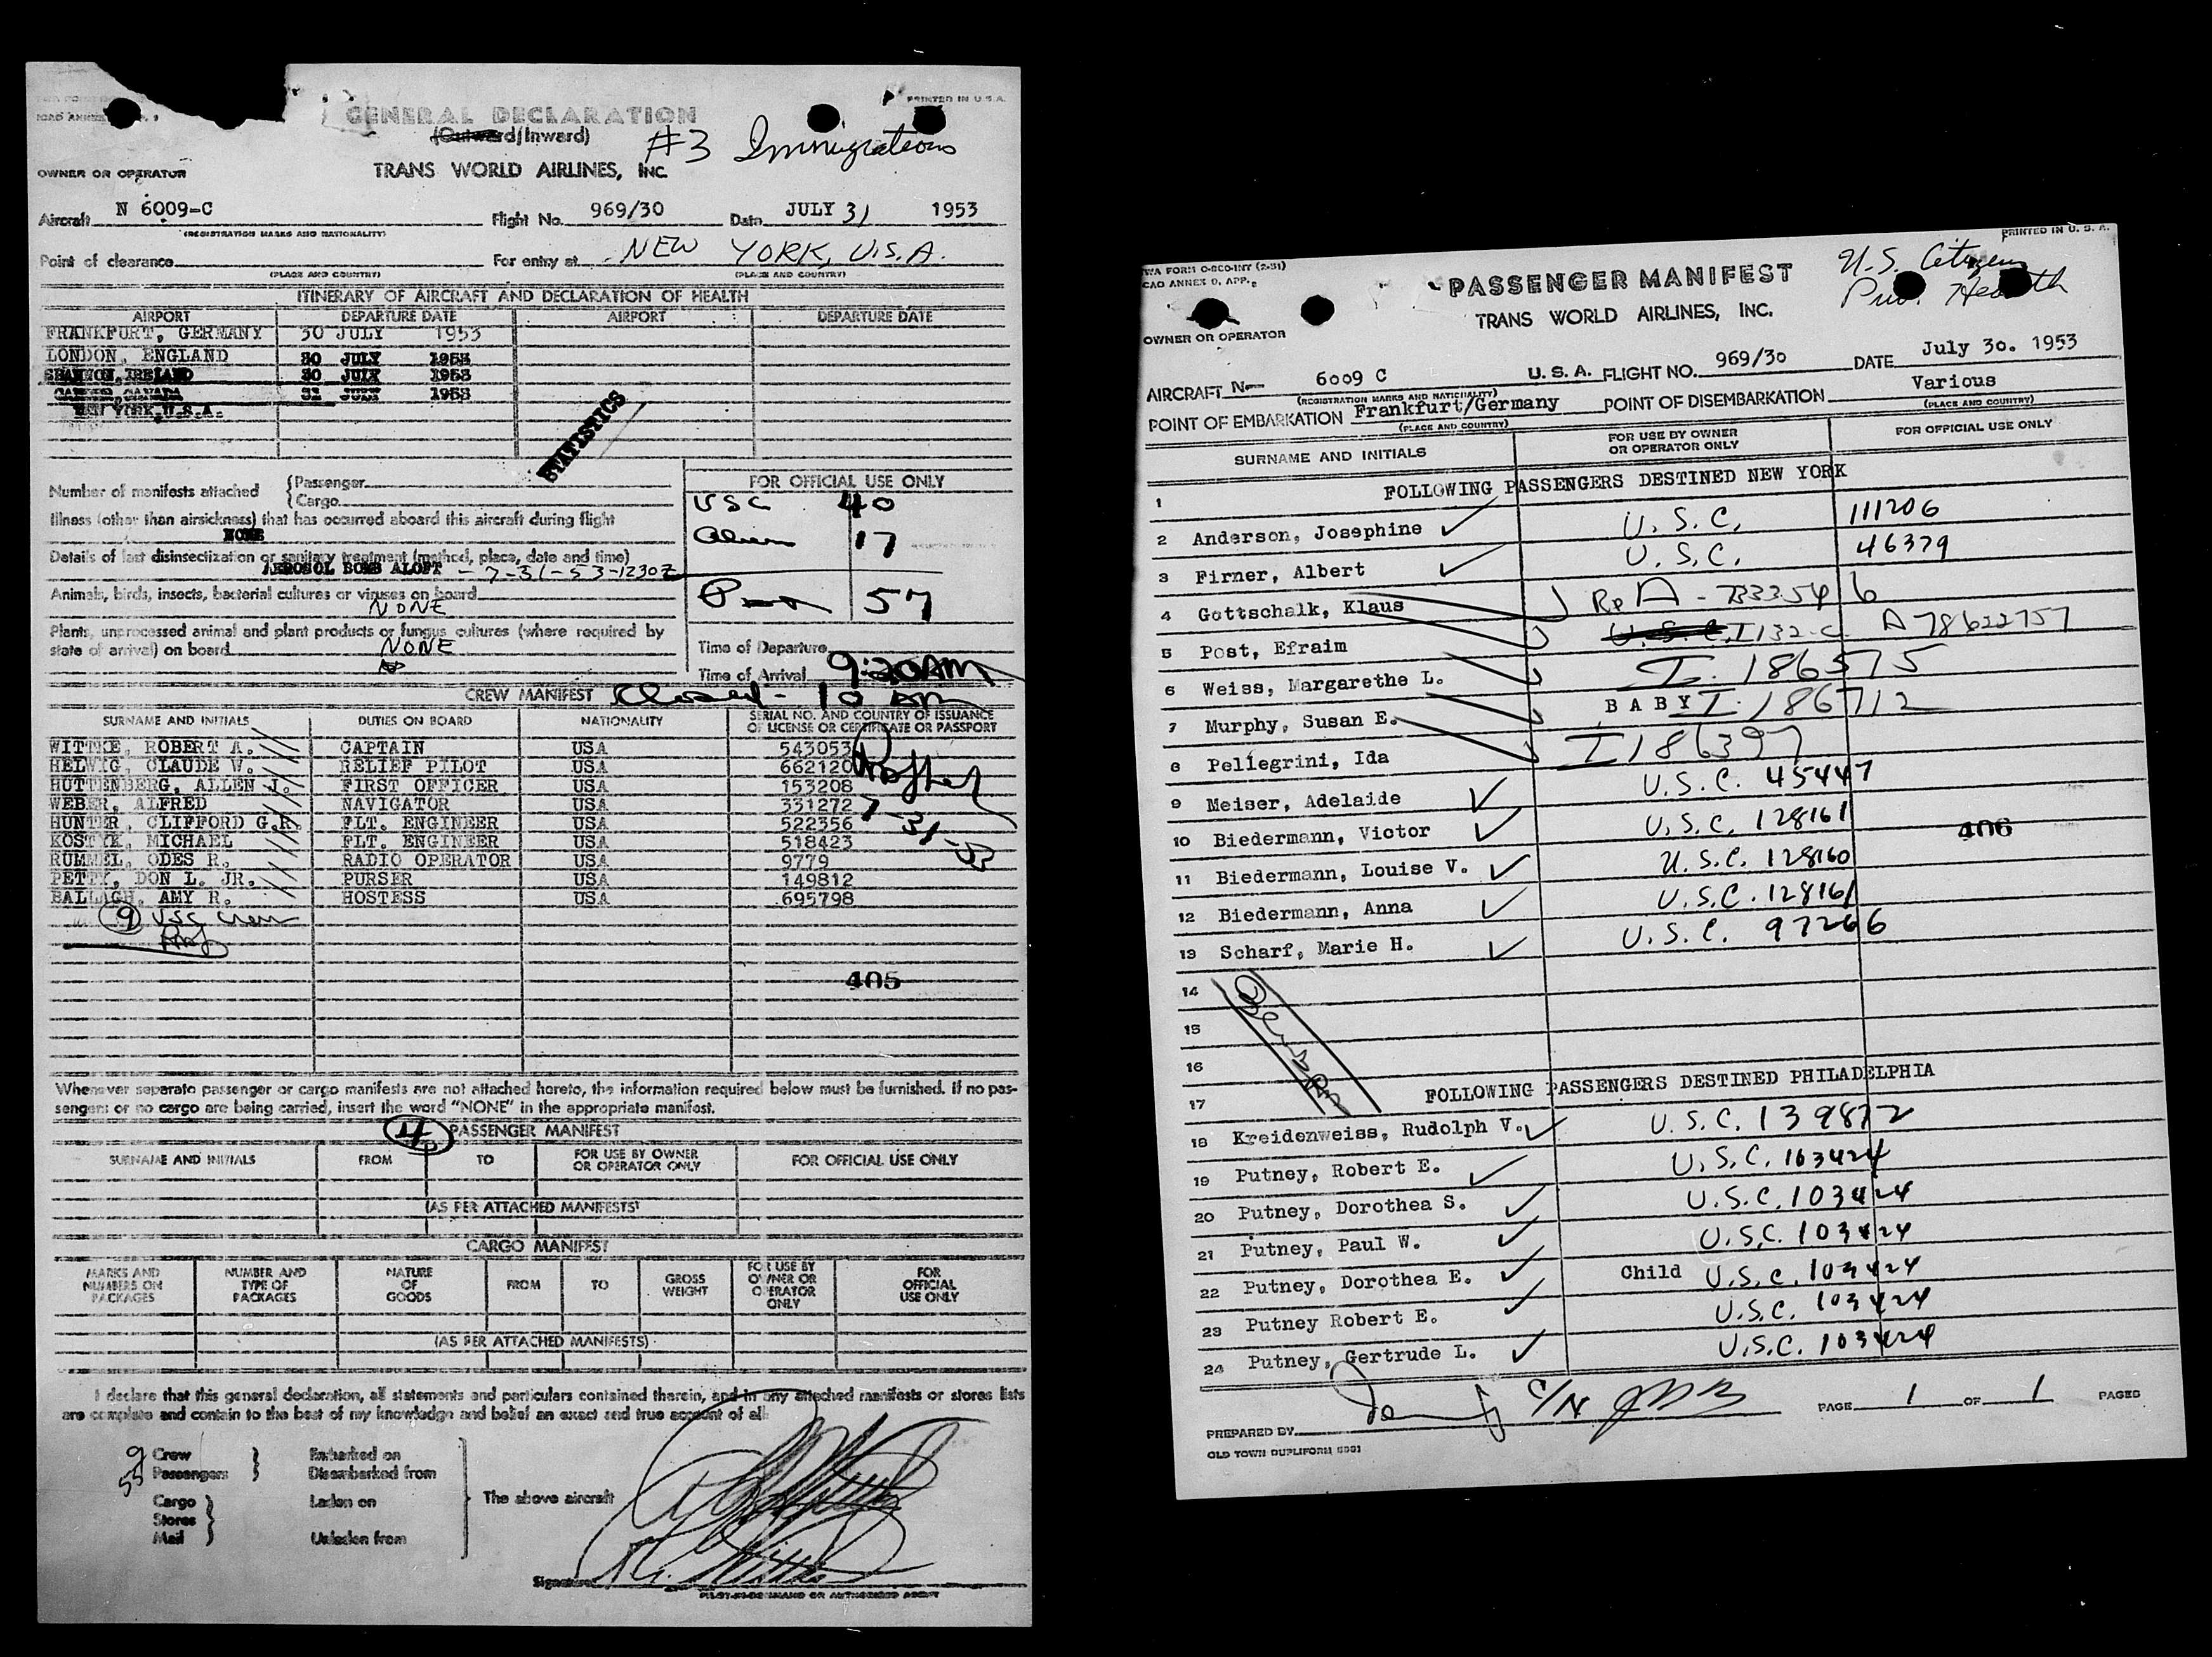 GENERAL DECLARATION
PRINTED IN U.S.A.
(Outward/Inward)
#3 Immigrations
OWNER OR OPERATOR
TRANS WORLD AIRLINES, INC.
Aircraft N 6009-C Flight No. 969/30 Date JULY 31 1953
(REGISTRATION MARKS AND NATIONALITY)
Point of clearance For entry at NEW YORK, U.S.A.
(PLACE AND COUNTRY) (PLACE AND COUNTRY)
ITINERARY OF AIRCRAFT AND DECLARATION OF HEALTH
AIRPORT DEPARTURE DATE AIRPORT DEPARTURE DATE
FRANKFURT, GERMANY 30 JULY 1953
LONDON, ENGLAND 30 JULY 1953
SHANNON, IRELAND 30 JULY 1953
GANDER, CANADA 31 JULY 1953
NEW YORK, U.S.A.
STATISTICS
Number of manifests attached { Passenger
Cargo
FOR OFFICIAL USE ONLY
USC 40
Alien 17
57
Illness (other than airsickness) that has occurred aboard this aircraft during flight
NONE
Details of last disinsectization or sanitary treatment (method, place, date and time)
AEROSOL BOMB ALOFT - 7-31-53-1230Z
Animals, birds, insects, bacterial cultures or viruses on board
NONE
Plants, unprocessed animal and plant products or fungus cultures (where required by
state of arrival) on board NONE
Time of Departure
Time of Arrival 9:20AM
CREW MANIFEST Closed - 10 AM
SURNAME AND INITIALS DUTIES ON BOARD NATIONALITY SERIAL NO. AND COUNTRY OF ISSUANCE
OF LICENSE OR CERTIFICATE OR PASSPORT
WITTKE, ROBERT A. CAPTAIN USA 543053
HELWIG, CLAUDE W. RELIEF PILOT USA 662120
HUTTENBERG, ALLEN J. FIRST OFFICER USA 153208
WEBER, ALFRED NAVIGATOR USA 331272
HUNTER, CLIFFORD G.R. FLT. ENGINEER USA 522356
KOSTYK, MICHAEL FLT. ENGINEER USA 518423
RUMMEL, ODES R. RADIO OPERATOR USA 9779
PETTY, DON L. JR. PURSER USA 149812
BALLAGH, AMY R. HOSTESS USA 695798
7-31-53
9 USC Crew
405
Whenever separate passenger or cargo manifests are not attached hereto, the information required below must be furnished. If no pas-
sengers or no cargo are being carried, insert the word "NONE" in the appropriate manifest.
4 PASSENGER MANIFEST
SURNAME AND INITIALS FROM TO FOR USE BY OWNER
OR OPERATOR ONLY FOR OFFICIAL USE ONLY
(AS PER ATTACHED MANIFESTS)
CARGO MANIFEST
MARKS AND
NUMBERS ON
PACKAGES NUMBER AND
TYPE OF
PACKAGES NATURE
OF
GOODS FROM TO GROSS
WEIGHT FOR USE BY
OWNER OR
OPERATOR
ONLY FOR
OFFICIAL
USE ONLY
(AS PER ATTACHED MANIFESTS)
I declare that this general declaration, all statements and particulars contained therein, and in any attached manifests or stores lists
are complete and contain to the best of my knowledge and belief an exact and true account of all:
9 Crew } Embarked on
55 Passengers } Disembarked from
Cargo } Laden on The above aircraft
Stores
Mail } Unladen from
Signature
PILOT-IN-COMMAND OR AUTHORIZED AGENT
PRINTED IN U. S. A.
TWA FORM O-8CO-INT (2-51)
ICAO ANNEX 9, APP.
U.S. Citizen
Pub. Health
PASSENGER MANIFEST
TRANS WORLD AIRLINES, INC.
OWNER OR OPERATOR
AIRCRAFT N 6009 C U. S. A. FLIGHT NO. 969/30 DATE July 30. 1953
(REGISTRATION MARKS AND NATIONALITY)
POINT OF EMBARKATION Frankfurt/Germany POINT OF DISEMBARKATION Various
(PLACE AND COUNTRY) (PLACE AND COUNTRY)
SURNAME AND INITIALS FOR USE BY OWNER
OR OPERATOR ONLY FOR OFFICIAL USE ONLY
1 FOLLOWING PASSENGERS DESTINED NEW YORK
2 Anderson, Josephine U.S.C. 111206
3 Firner, Albert U.S.C. 46379
4 Gottschalk, Klaus Rp A-7833546
5 Post, Efraim U.S.C. I132-C A78622757
6 Weiss, Margarethe L. I. 186575
7 Murphy, Susan E. BABY I. 186712
8 Pellegrini, Ida I186397
9 Meiser, Adelaide U.S.C. 45447
10 Biedermann, Victor U.S.C. 128161
406
11 Biedermann, Louise V. U.S.C. 128160
12 Biedermann, Anna U.S.C. 128161
13 Scharf, Marie H. U.S.C. 97266
14
15
16
17 FOLLOWING PASSENGERS DESTINED PHILADELPHIA
18 Kreidenweiss, Rudolph V. U.S.C. 139872
19 Putney, Robert E. U.S.C. 103424
20 Putney, Dorothea S. U.S.C. 103424
21 Putney, Paul W. U.S.C. 103424
22 Putney, Dorothea E. Child U.S.C. 103424
23 Putney Robert E. U.S.C. 103424
24 Putney, Gertrude L. U.S.C. 103424
PREPARED BY PAGE 1 OF 1 PAGES
OLD TOWN DUPLIFORM